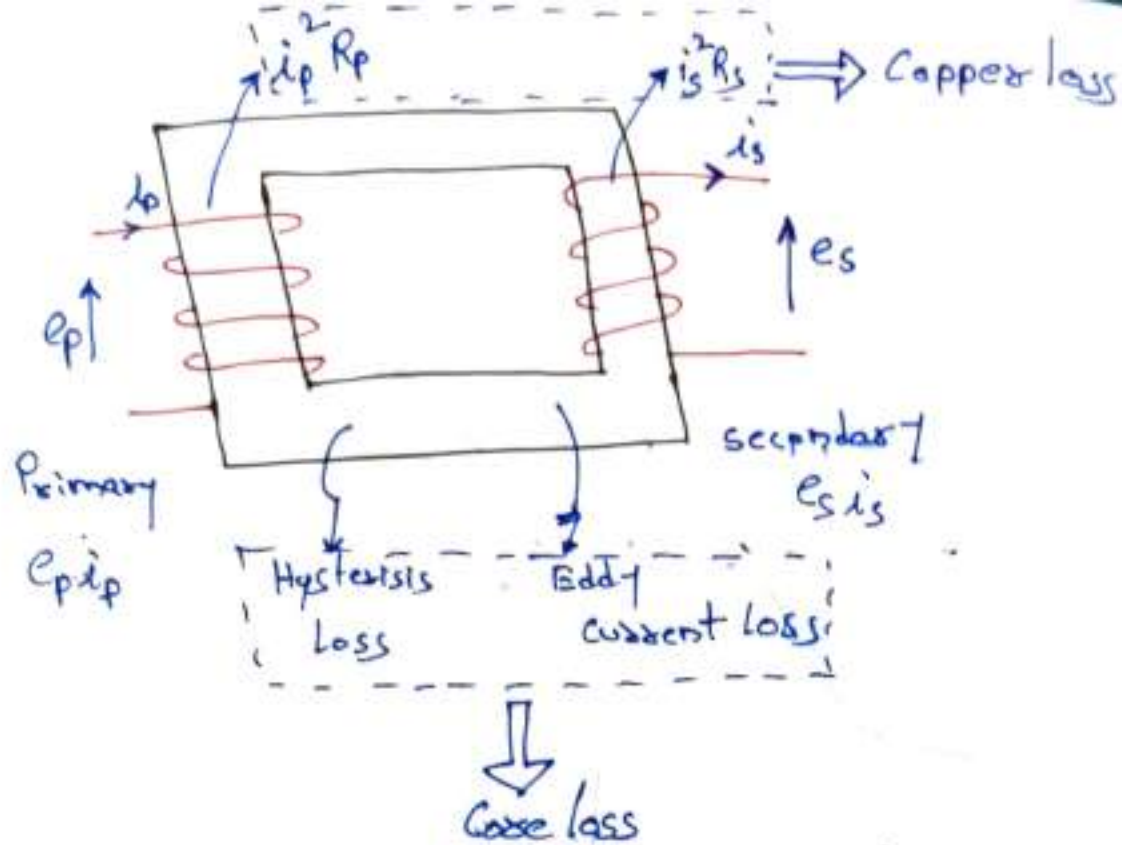 i_p²R_p
i_s²R_s
Copper loss
i_p
i_s
e_p
e_s
Primary
e_p i_p
secondary
e_s i_s
Hysterisis
Loss
Eddy
current loss
Core loss